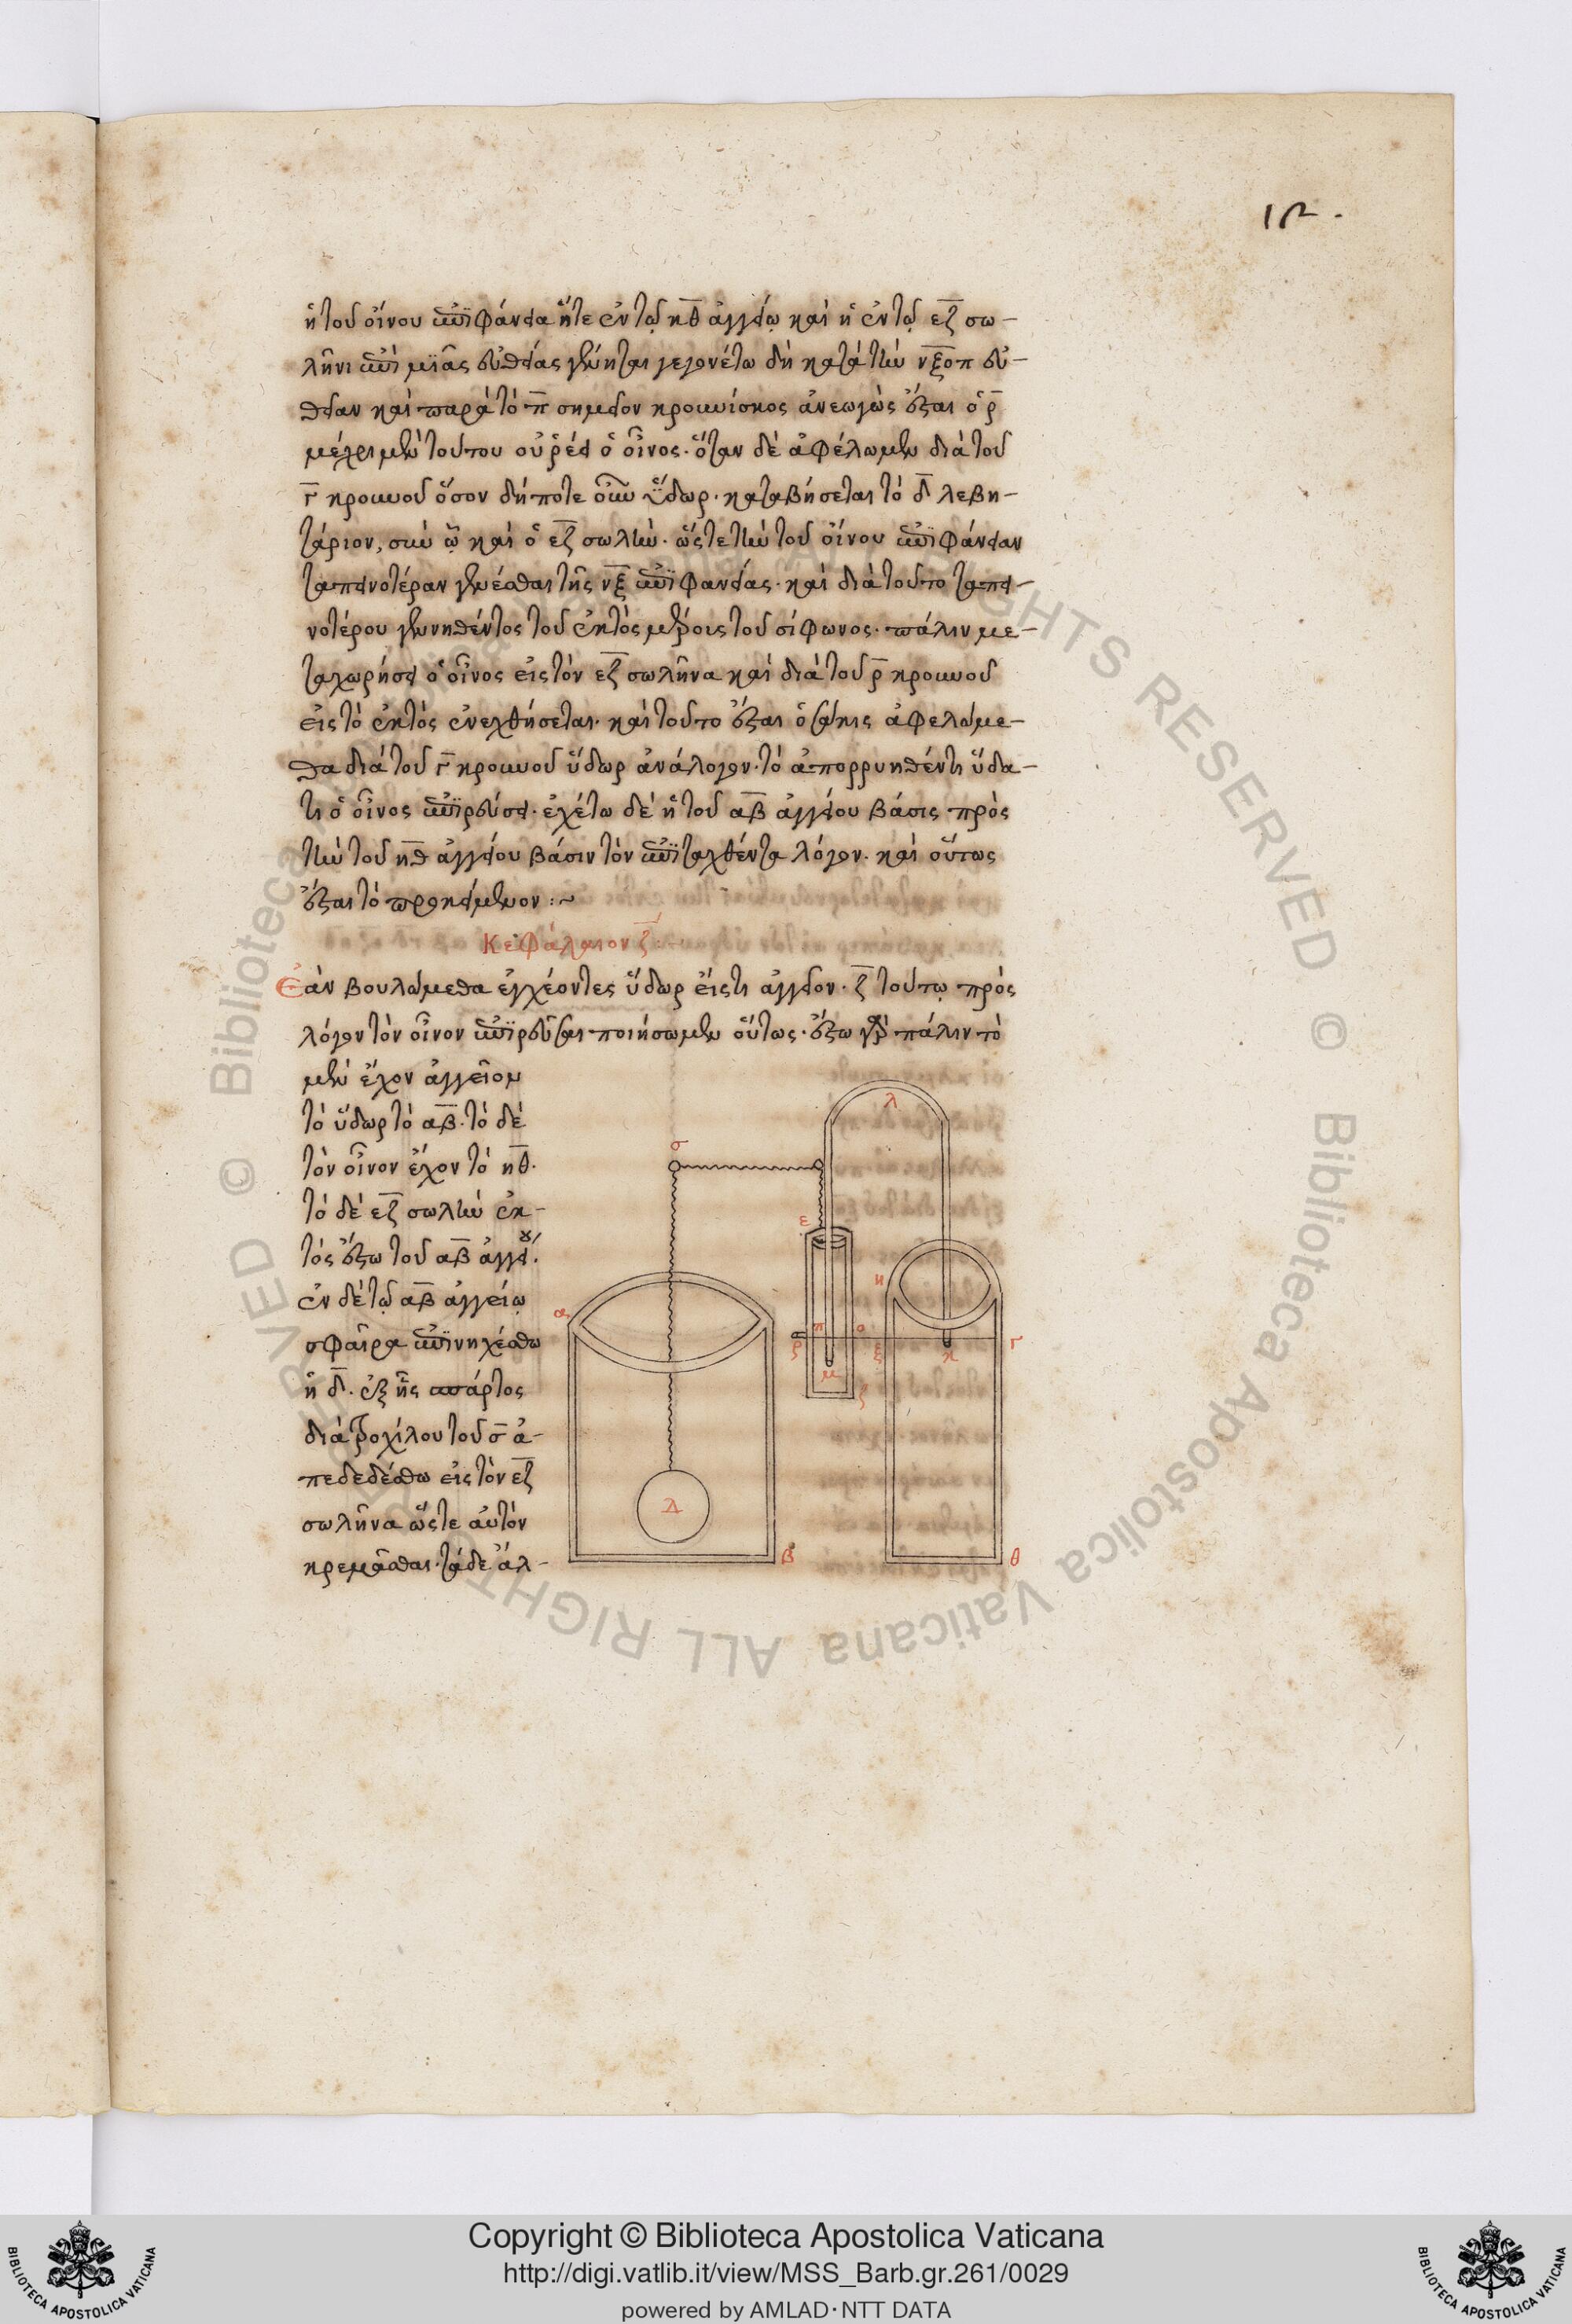 12.
ἡ τοῦ οἴνου ἐπιφάνεια ἥτε ἐν τῷ ηθ ἀγγείῳ καὶ ἡ ἐν τῷ εζ σω-
λῆνι ἐπὶ μιᾶς εὐθείας γένηται γεγονέτω δὴ κατὰ τὴν νξοπ εὐ-
θεῖαν καὶ παρὰ τὸ π σημεῖον κρουνίσκος ἀνεωγὼς ἔσται ὁ ρ
μέχρι μὲν τούτου οὐ ῥέει ὁ οἶνος· ὅταν δὲ ἀφέλωμεν διὰ τοῦ
γ κρουνοῦ ὅσον δήποτε οὖν ὕδωρ· καταβήσεται τὸ δ λεβη-
τάριον, σὺν ᾧ καὶ ὁ εζ σωλήν· ὥστε τὴν τοῦ οἴνου ἐπιφάνειαν
ταπεινοτέραν γενέσθαι τῆς νξ ἐπιφανείας· καὶ διὰ τοῦτο ταπει-
νοτέρου γενηθέντος τοῦ ἐκτὸς μέρους τοῦ σίφωνος· πάλιν με-
ταχωρήσει ὁ οἶνος εἰς τὸν εζ σωλῆνα καὶ διὰ τοῦ ρ κρουνοῦ
εἰς τὸ ἐκτὸς ἐνεχθήσεται· καὶ τοῦτο ἔσται ὁσάκις ἀφελώμε-
θα διὰ τοῦ γ κρουνοῦ ὕδωρ ἀνάλογον· τὸ ἀπορρυηθέντι ὕδα-
τι ὁ οἶνος ἐπιρεύσει· ἐχέτω δὲ ἡ τοῦ αβ ἀγγείου βάσις πρὸς
τὴν τοῦ ηθ ἀγγείου βάσιν τὸν ἐπιταχθέντα λόγον· καὶ οὕτως
ἔσται τὸ προκείμενον :~
Κεφάλαιον ζ :
Ἐὰν βουλώμεθα ἐγχέοντες ὕδωρ εἴς τι ἀγγεῖον· ζ τούτῳ πρὸς
λόγον τὸν οἶνον ἐπιρεῦσαι ποιήσωμεν οὕτως· ἔστω γὰρ πάλιν τὸ
μὲν ἔχον ἀγγεῖον
τὸ ὕδωρ τὸ αβ· τὸ δὲ
τὸν οἶνον ἔχον τὸ ηθ·
τὸ δὲ εζ σωλὴν ἐκ-
τὸς ἔστω τοῦ αβ ἀγγείου·
ἐν δὲ τῷ αβ ἀγγείῳ
σφαῖρα ἐπινηχέσθω
ἡ δ· ἐξ ἧς σπάρτος
διὰ τροχίλου τοῦ σ ἀ-
πεδεδέσθω εἰς τὸν εζ
σωλῆνα ὥστε αὐτὸν
κρεμᾶσθαι· τὰ δε ἀλ-
λ
σ
ε
η
α
π
ο
ρ
ξ
κ
γ
μ
ζ
Δ
β
θ
© Biblioteca Apostolica Vaticana ALL RIGHTS RESERVED © Biblioteca Apostolica Vaticana ALL RIGHTS RESERVED
BIBLIOTECA APOSTOLICA VATICANA
Copyright © Biblioteca Apostolica Vaticana
http://digi.vatlib.it/view/MSS_Barb.gr.261/0029
powered by AMLAD·NTT DATA
BIBLIOTECA APOSTOLICA VATICANA